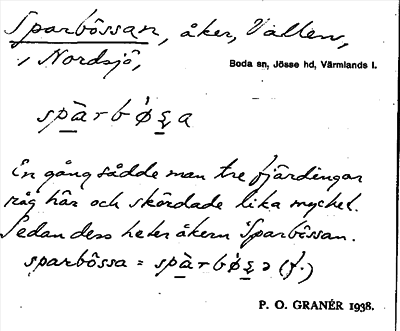 Sparbössan, åker, Vallen,
i Nordsjö,
Boda sn, Jösse hd, Värmlands l.
spàrbǿʂa
En gång sådde man tre fjärdingar
råg här och skördade lika mycket.
Sedan dess heter åkern Sparbössan.
sparbössa = spàrbǿʂə (f.)
P. O. GRANÉR 1938.